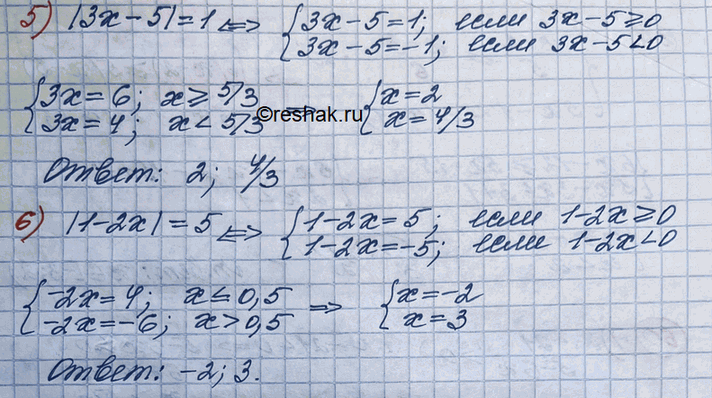 5) |3x-5|=1 <=> { 3x-5=1; если 3x-5≥0
3x-5=-1; если 3x-5<0
{ 3x=6; x≥5/3 => { x=2
3x=4; x<5/3 x=4/3
©reshak.ru
Ответ: 2; 4/3
6) |1-2x|=5 <=> { 1-2x=5; если 1-2x≥0
1-2x=-5; если 1-2x<0
{ -2x=4; x≤0,5 => { x=-2
-2x=-6; x>0,5 x=3
Ответ: -2; 3.